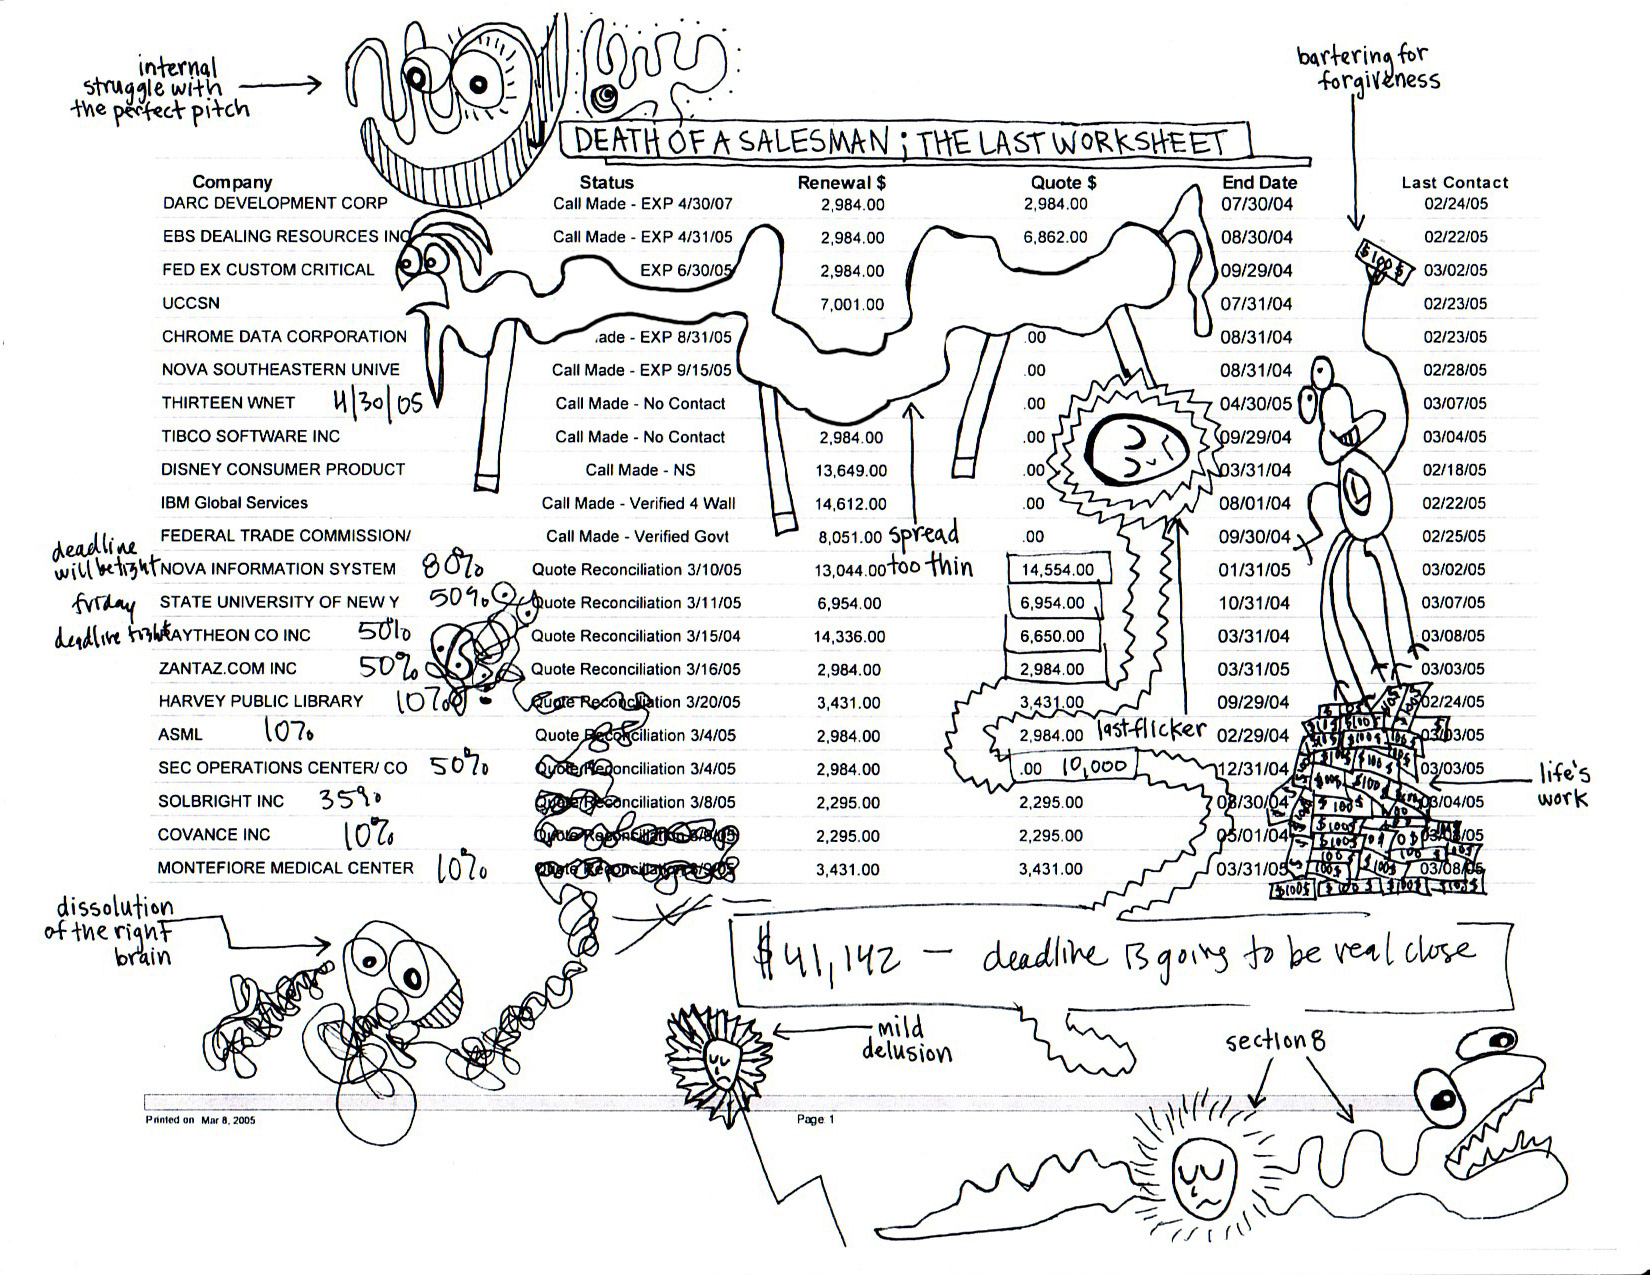 internal
struggle with
the perfect pitch
bartering for
forgiveness
DEATH OF A SALESMAN ; THE LAST WORKSHEET
Company Status Renewal $ Quote $ End Date Last Contact
DARC DEVELOPMENT CORP Call Made - EXP 4/30/07 2,984.00 2,984.00 07/30/04 02/24/05
EBS DEALING RESOURCES INC Call Made - EXP 4/31/05 2,984.00 6,862.00 08/30/04 02/22/05
$100$
FED EX CUSTOM CRITICAL EXP 6/30/05 2,984.00 09/29/04 03/02/05
UCCSN 7,001.00 07/31/04 02/23/05
CHROME DATA CORPORATION ade - EXP 8/31/05 .00 08/31/04 02/23/05
NOVA SOUTHEASTERN UNIVE Call Made - EXP 9/15/05 .00 08/31/04 02/28/05
THIRTEEN WNET 4/30/05 Call Made - No Contact .00 04/30/05 03/07/05
TIBCO SOFTWARE INC Call Made - No Contact 2,984.00 .00 09/29/04 03/04/05
DISNEY CONSUMER PRODUCT Call Made - NS 13,649.00 .00 03/31/04 02/18/05
IBM Global Services Call Made - Verified 4 Wall 14,612.00 .00 08/01/04 02/22/05
FEDERAL TRADE COMMISSION/ Call Made - Verified Govt 8,051.00 .00 09/30/04 02/25/05
spread
too thin
deadline
will be tight
NOVA INFORMATION SYSTEM 80% Quote Reconciliation 3/10/05 13,044.00 14,554.00 01/31/05 03/02/05
friday
STATE UNIVERSITY OF NEW Y 50% Quote Reconciliation 3/11/05 6,954.00 6,954.00 10/31/04 03/07/05
deadline tight
RAYTHEON CO INC 50% Quote Reconciliation 3/15/04 14,336.00 6,650.00 03/31/04 03/08/05
ZANTAZ.COM INC 50% Quote Reconciliation 3/16/05 2,984.00 2,984.00 03/31/05 03/03/05
HARVEY PUBLIC LIBRARY 10% Quote Reconciliation 3/20/05 3,431.00 3,431.00 09/29/04 02/24/05
ASML 10% Quote Reconciliation 3/4/05 2,984.00 2,984.00 02/29/04 03/03/05
last flicker
SEC OPERATIONS CENTER/ CO 50% Quote Reconciliation 3/4/05 2,984.00 .00 10,000 12/31/04 03/03/05
life's
work
SOLBRIGHT INC 35% Quote Reconciliation 3/8/05 2,295.00 2,295.00 08/30/04 03/04/05
COVANCE INC 10% Quote Reconciliation 3/8/05 2,295.00 2,295.00 05/01/04 03/08/05
MONTEFIORE MEDICAL CENTER 10% Quote Reconciliation 3/9/05 3,431.00 3,431.00 03/31/05 03/08/05
$100$ $100$ $100$ $100$
dissolution
of the right
brain
$41,142 — deadline is going to be real close
mild
delusion
section 8
Printed on Mar 8, 2005 Page 1